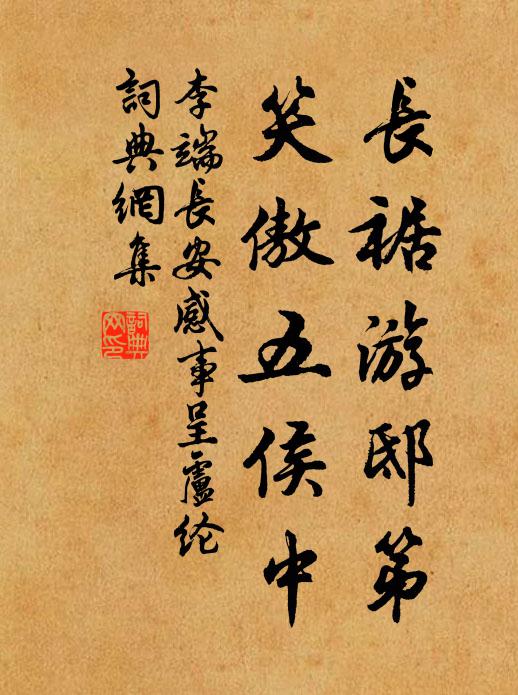 長裾游邸第
笑傲五侯中
李端長安感事呈盧纶
詞典網集
詞典
网印